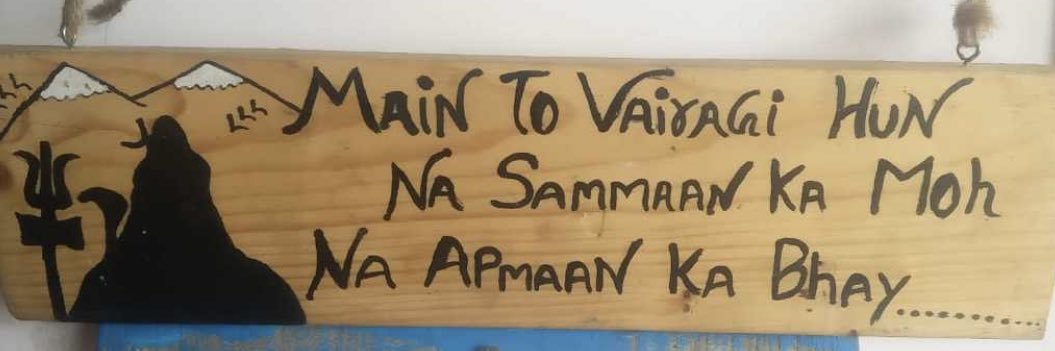 Main To Vairagi Hun
Na Sammaan Ka Moh
Na Apmaan Ka Bhay............